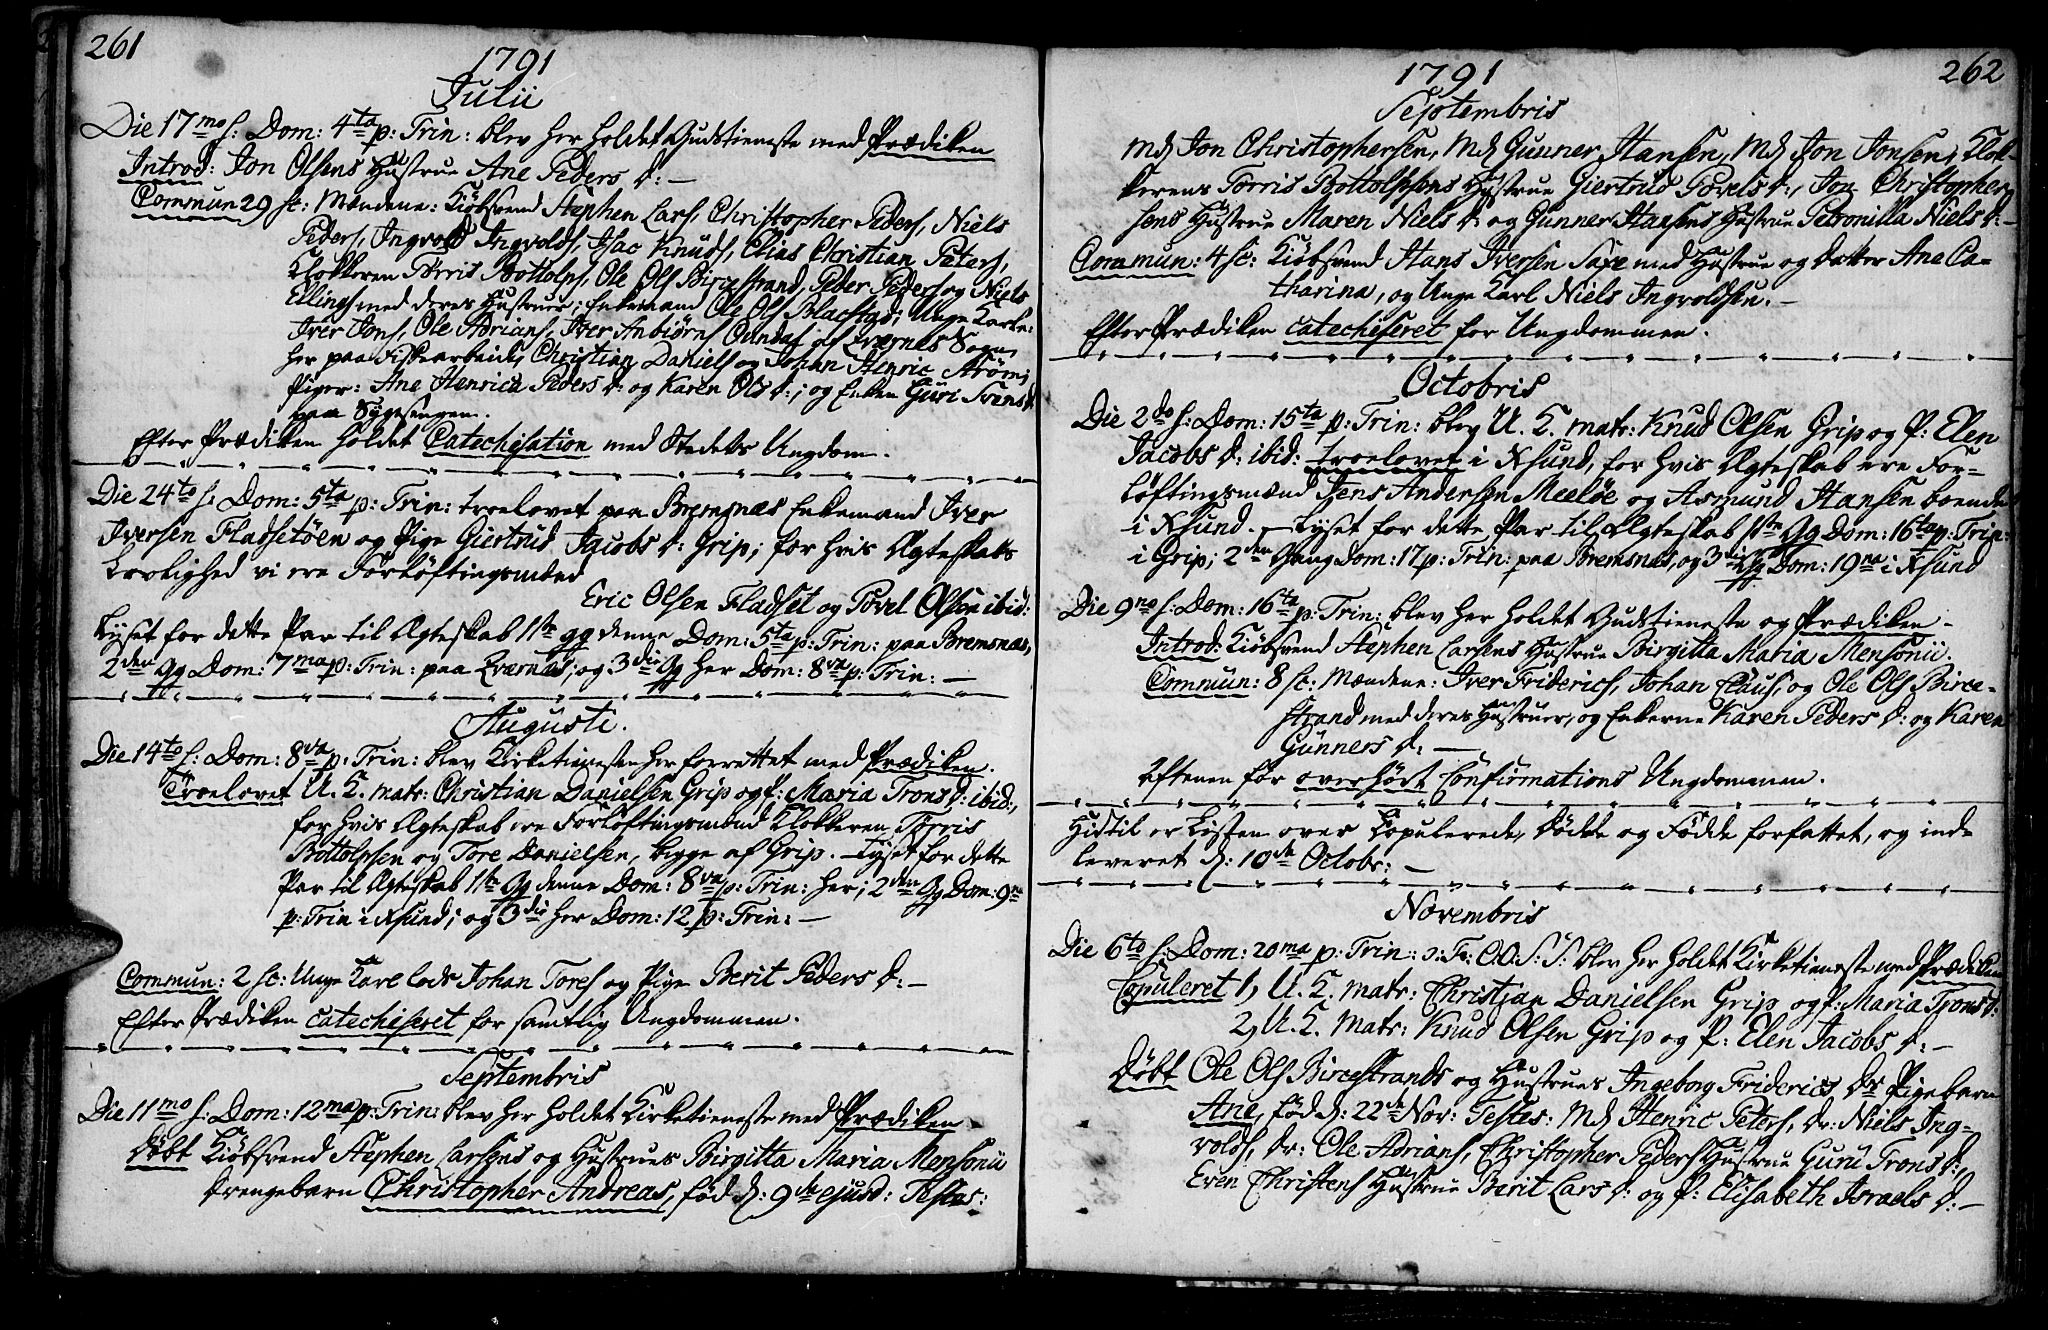 261
1791
Julii
Die 17mo s: Dom: 4ta p: Trin: blev her holdet Gudstieneste med Prædiken
Introd: Jon Olsens Hustrue Ane Peders d: —
Commun 29 st: Mændene: Kiöbsvend Stephen Lars, Christopher Peders, Niels
Peders, Ingvold Ingvolds, Isac Knuds, Elias Christian Peters,
Klokkeren Törris Bottolps, Ole Ols Bircestrand, Peder Peders og Niels
Ellings med deres Hustruer; Enkemand Ole Ols; Unge Karle:
Iver Jons, Ole Adrians, Iver Anbiörns af Qværnæs Sogn
her paa Fiskearbeide, Christian Daniels og Johan Henric Ström;
Piger: Ane Henrica Peders d: og Karen Ols d:; og Enken Guri Svins d:
paa Sygesengen.
Efter Prædiken holdet Catechisation med Stedets Ungdom.
Die 24to s: Dom: 5ta p: Trin: troelovet paa Bremsnæs Enkemand Iver
Iversen Fladsetöen og Pige Giertrud Jacobs d: Grip; for hvis Ægteskabs
Lovlighed vi ere Forlöftingsmænd
Eric Olsen Fladset og Povel Olsen ibid:
Lyset for dette Par til Ægteskab 1ste Gg denne Dom: 5ta p: Trin: paa Bremsnæs,
2den Gg Dom: 7ma p: Trin: paa Qværnæs; og 3die Gg her Dom: 8va p: Trin: —
Augusti.
Die 14to s: Dom: 8va p: Trin: blev Kirketienesten her forrettet med Prædiken.
Troelovet U. K. mats: Christian Danielsen Grip og P: Maria Trons d: ibid:,
for hvis Ægteskab ere Forlöftingsmænd Klokkeren Törris
Bottolpsen og Tore Danielsen, begge af Grip. Lyset for dette
Par til Ægteskab 1ste Gg denne Dom: 8va p: Trin: her; 2den Gg Dom: 9na
p: Trin i Xsund; og 3die her Dom: 12 p: Trin: —
Commun: 2 st: Unge Karl Johan Tores og Pige Berit Peders d: —
Efter Prædiken catechiseret for samtlig Ungdommen.
Septembris
Die 11mo s: Dom: 12ma p: Trin: blev her holdet Kirketieneste med Prædiken
Döbt Kiöbsvend Stephen Larsens og Hustrues Birgitta Maria Mensonii
Drengebarn Christopher Andreas, föd d: 9de ejusd: Testes:
262
1791
Septembris
Md Jon Christophersen, Md Gunner Hansen, Md Jon Jonsen, Klok-
kerens Törris Bottolpsens Hustrue Giertrud Povels d:, Jon Christopher-
sens Hustrue Maren Niels d: og Gunner Hansens Hustrue Petronilla Niels d: —
Commun: 4 st: Kiöbsvend Hans Iversen Saxe med Hustrue og Datter Ane Ca-
tharina, og Unge Karl Niels Ingvoldsen. —
Efter Prædiken catechiseret for Ungdommen.
Octobris
Die 2do s: Dom: 15ta p: Trin: blev U. K. mats: Knud Olsen Grip og P: Elen
Jacobs d: ibid: troelovet i Xsund, for hvis Ægteskab ere For-
löftingsmænd Jens Andersen Meelöe og Asmund Hansen boende
i Xsund. — Lyset for dette Par til Ægteskab 1ste Gg Dom: 16ta p: Trin:
i Grip; 2den Gang Dom: 17 p: Trin: paa Bremsnæs, og 3die Gg Dom: 19na i Xsund
Die 9no s: Dom: 16ta p: Trin: blev her holdet Gudstieneste og Prædiken —
Introd: Kiöbsvend Stephen Larsens Hustrue Birgitta Maria Mensonii.
Commun: 8 st: Mændene: Iver Friderics, Johan Claus, og Ole Ols Birce-
strand med deres Hustruer, og Enkerne Karen Peders d: og Karen
Gunners d: —
Aftenen för overhört Confirmations Ungdommen.
Hidtil er Listen over Copulerede, Döde og Födde forfattet, og ind-
leveret d: 10de Octobr: —
Novembris
Die 6to s: Dom: 20ma p: Trin: O. O. S. S. blev her holdet Kirketieneste med Prædiken
Copuleret 1, U. K. mats: Christjan Danielsen Grip og P: Maria Trons d:
2, U. K. Mats: Knud Olsen Grip og P: Elen Jacobs d: —
Döbt Ole Ols Bircestrands og Hustrues Ingeborg Friderics Dr Pigebarn
Ane, föd d: 22de Nov: Testes: Md Henric Peters, Dr: Niels Ing-
volds, Dr: Ole Adrians, Christopher Peders Hustrue Guru Trons d:,
Even Christens Hustrue Berit Lars d: og P: Elisabeth Israels d: —